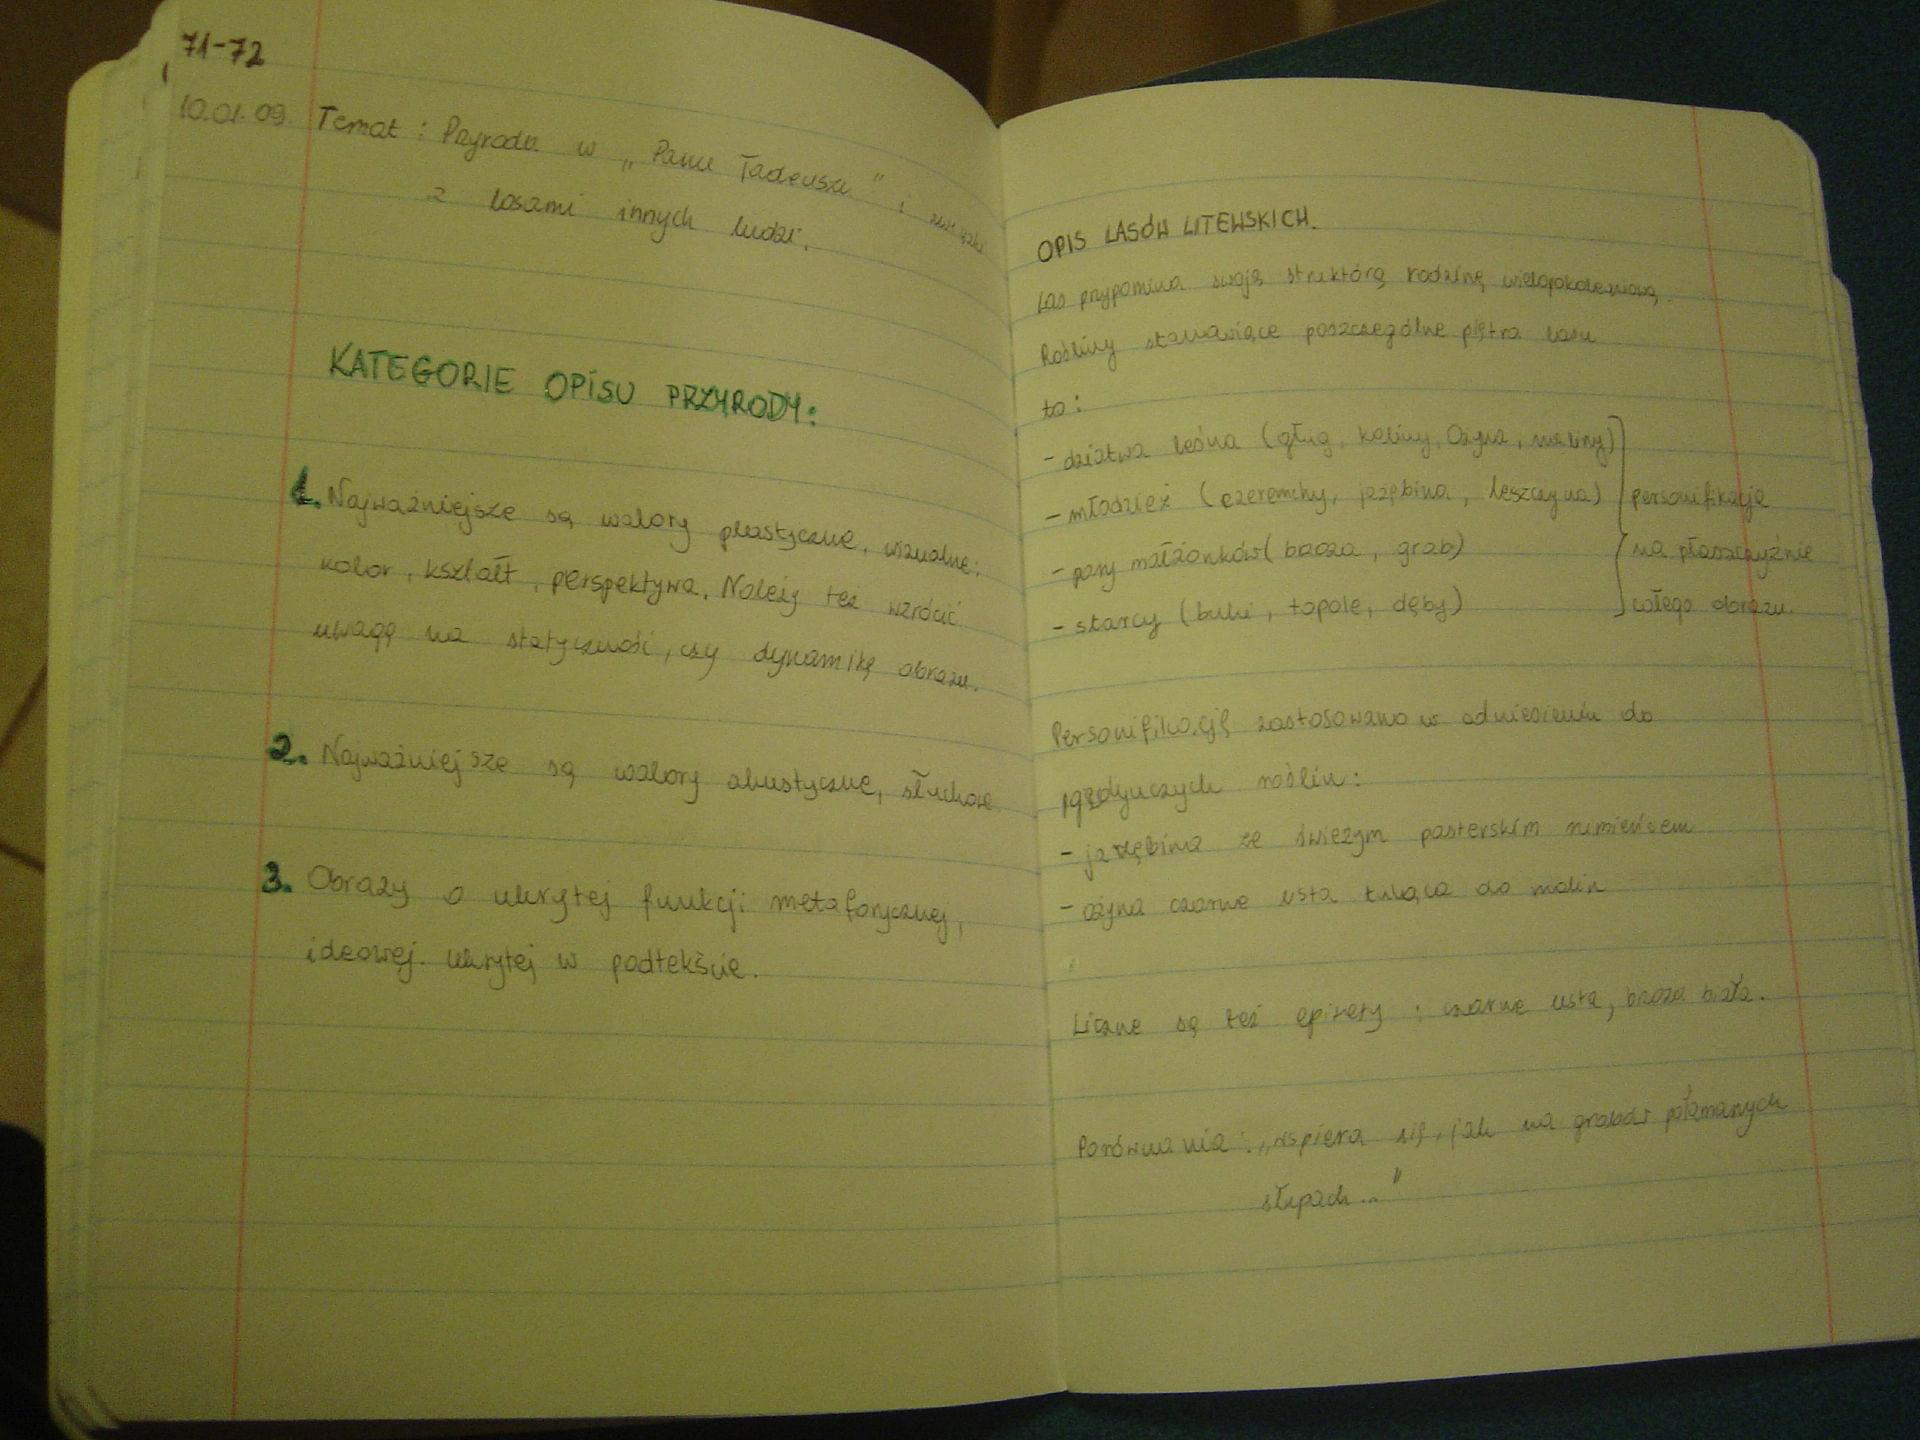 71-72
10.01.09. Temat: Przyroda w „Panu Tadeuszu" i związki
z losami innych ludzi.
KATEGORIE OPISU PRZYRODY:
1. Najważniejsze są walory plastyczne, wizualne:
kolor, kształt, perspektywa. Należy też wzrócić
uwagę na statyczność, czy dynamikę obrazu.
2. Najważniejsze są walory akustyczne, słuchowe
3. Obrazy o ukrytej funkcji metaforycznej,
ideowej. ukrytej w podtekście.
OPIS LASÓW LITEWSKICH.
Las przypomina swoją struktórą rodzinę wielopokoleniową.
Rośliny stanawiące poszczególne piętra lasu
to:
- dziatwa leśna (głóg, kaliny, Ożyna, maliny)
- młodzież (czeremchy, jazębina, leszczyna) personifikacja
- pary małżonków (brzoza, grab) na płaszczyźnie
- starcy (buki, topole, dęby) całego obrazu.
Personifikację zastosowano w odniesieniu do
pojedynczych roślin:
- jarzębina ze świeżym pasterskim rumieńcem
- ożyna czarne usta tuląca do malin
Liczne są też epitety: czarne usta, brzoza biała.
Porównania: „wspiera się, jak na grobów połamanych
słupach..."